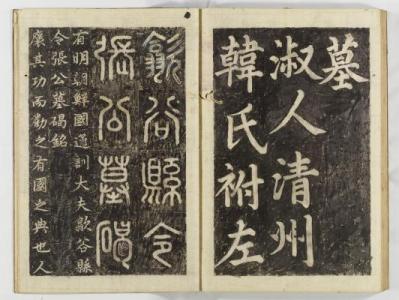 墓
淑人清州
韓氏祔左
歙谷縣令
張公墓碣
有明朝鮮國通訓大夫歙谷縣
令張公墓碣銘
褒其功而勸之有國之典也人